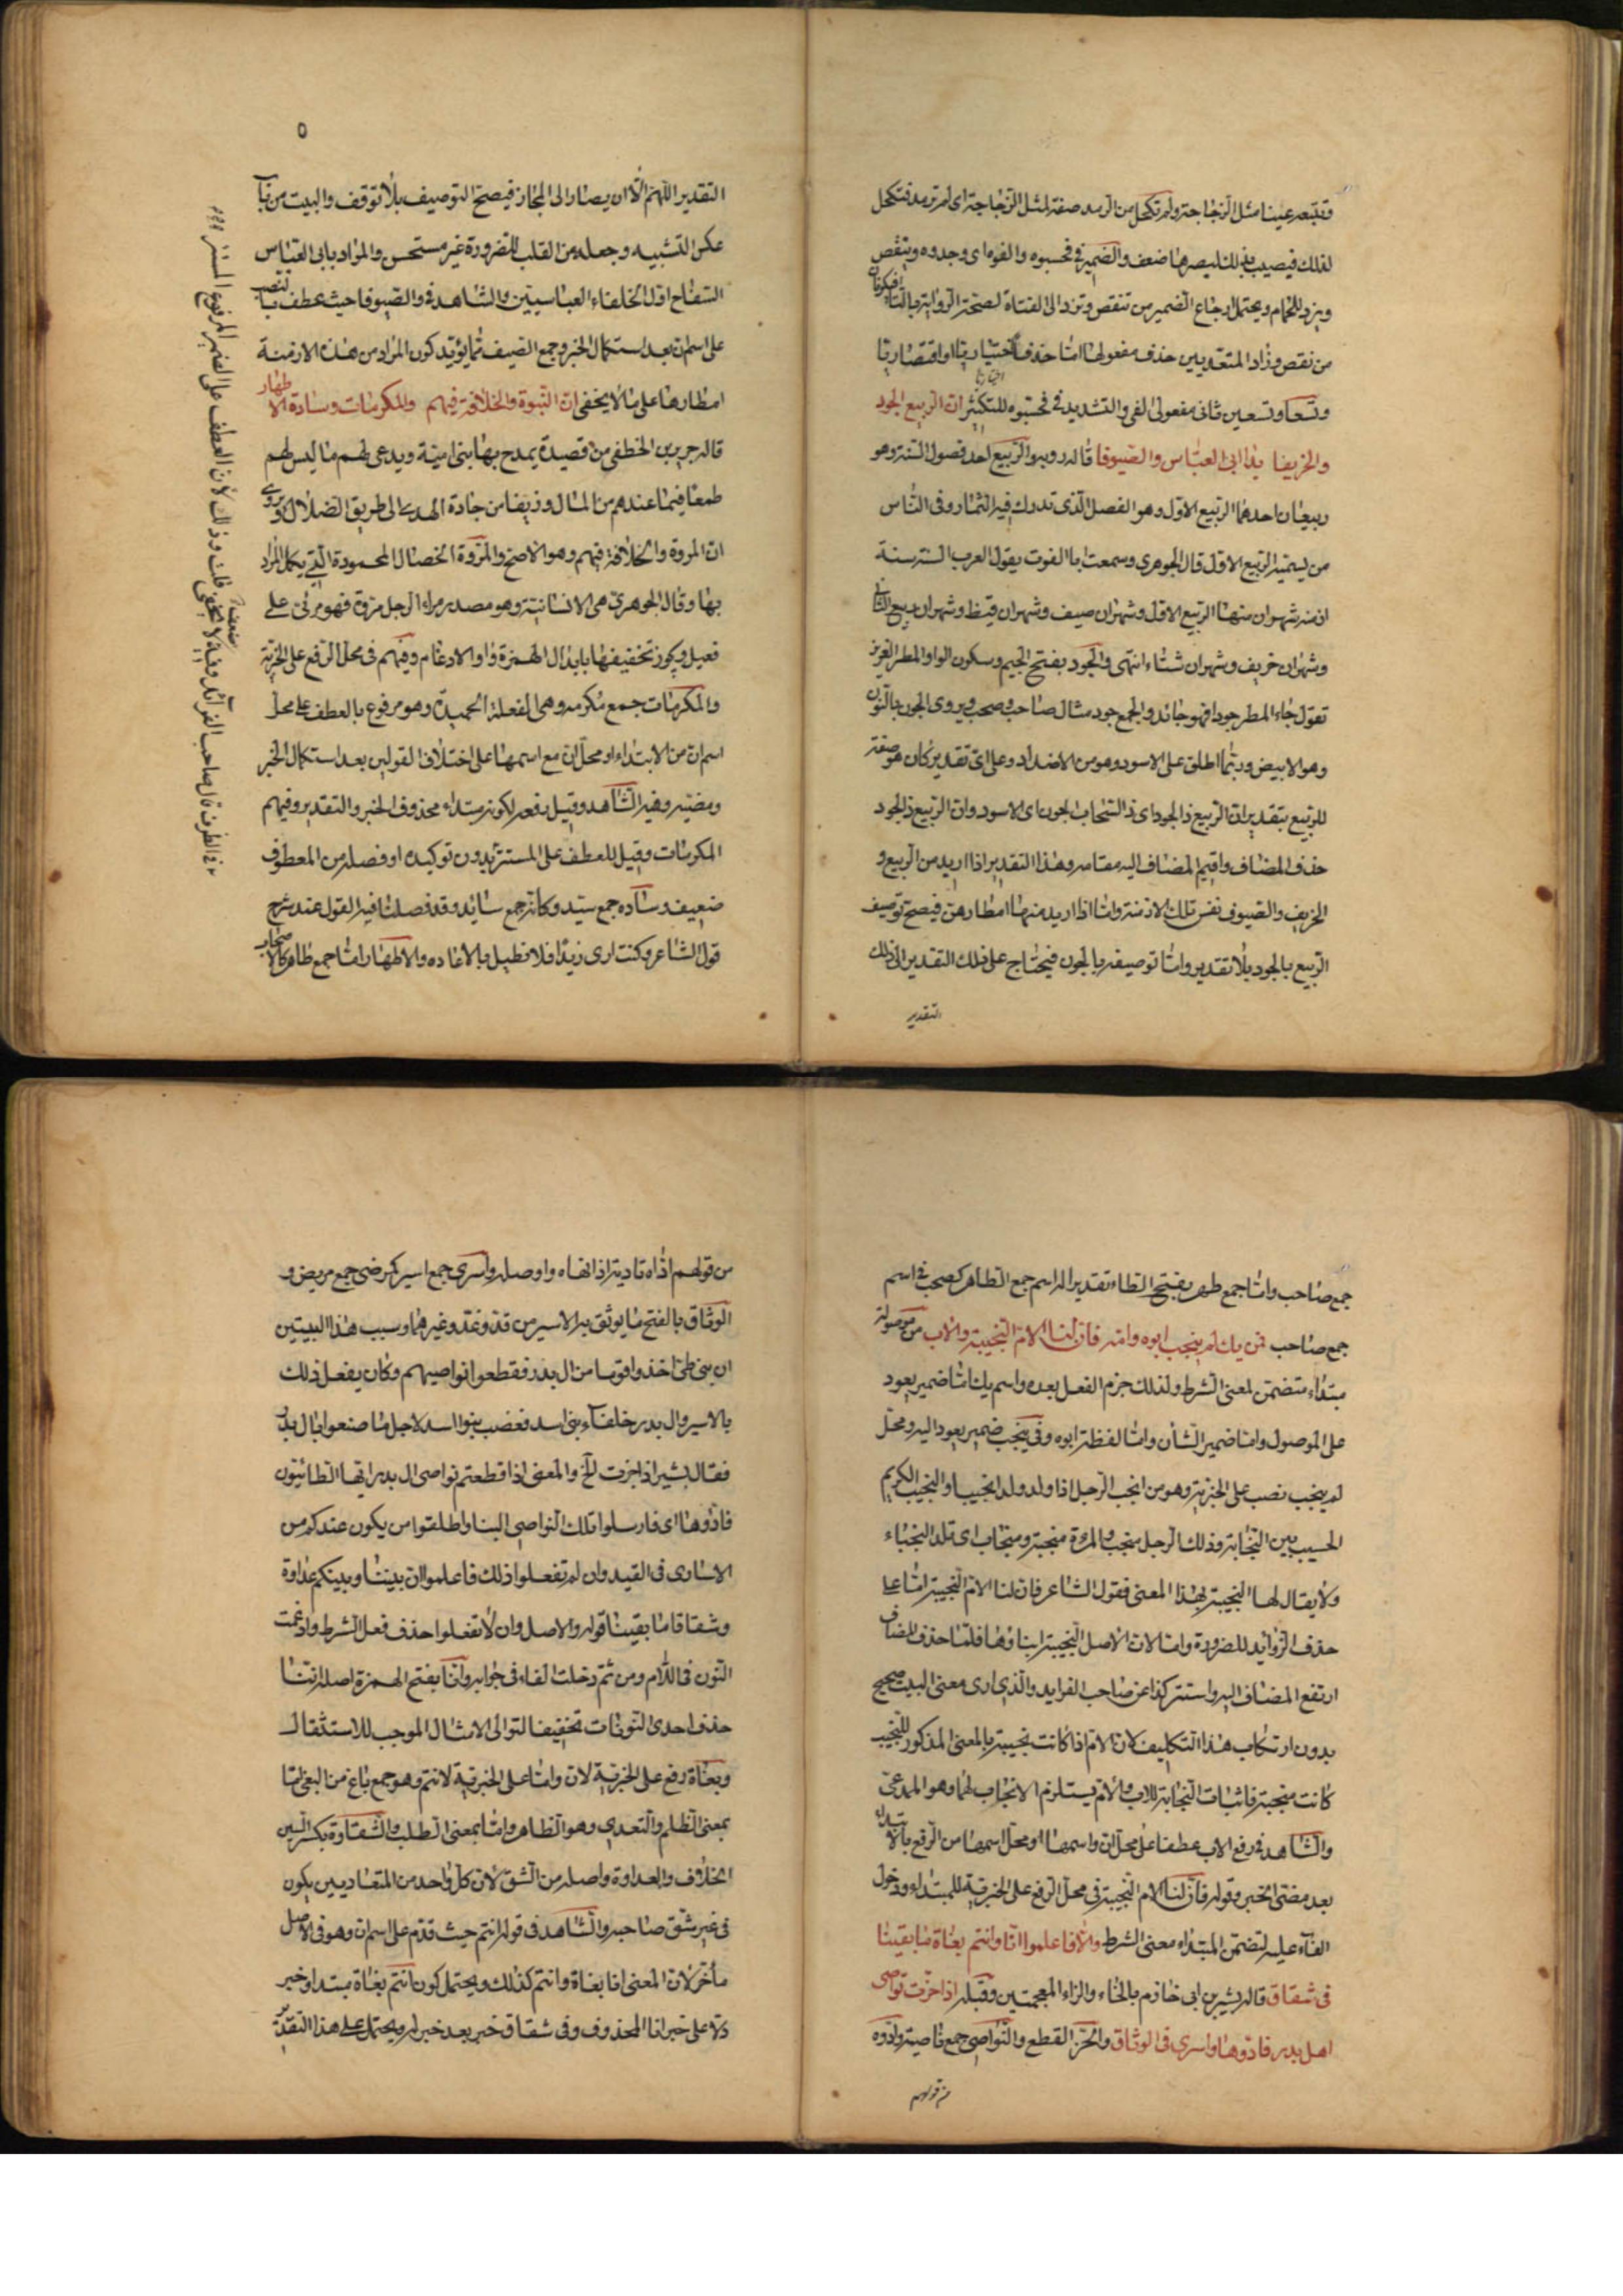 وتتبعه عينا مثل الزجاجة ولم تكحل من الرمد صفة لمثل الزجاجة اى لم ترمد فتكحل
لذلك فيصيب بذلك بصرها ضعف والضمير فى فحسبوه والفوه اى وجدوه وينقص
ويزد للحمام ويحتمل ارجاع الضمير من تنقص وتزد الى الفتاة لصحة الرواية بالتاء فيكونان
من نقص وزاد المتعديين حذف مفعولهما اما حذفا اختياريا او اقتصاريا
اختياريا
وتسعا وتسعين ثانى مفعولى الفى والتشديد فى فحسبوه للتكثير ان الربيع الجود
والخريفا يدا ابى العباس والصيوفا قاله روبه والربيع احد فصول السنة وهو
ربيعان احدهما الربيع الاول وهو الفصل الذى تدرك فيه الثمار وفى الناس
من يسميه الربيع الاول قال الجوهرى وسمعت ابا الغوث يقول العرب السنة ستة
ازمنه شهران منها الربيع الاول وشهران صيف وشهران قيظ وشهران ربيع الثانى
وشهران خريف وشهران شتاء انتهى والجود بفتح الجيم وسكون الواو المطر الغزير
تقول جاء المطر جودا فهو جائد والجمع جود مثال صاحب وصحب ويروى الجون بالنون
وهو الابيض وربما اطلق على الاسود وهو من الاضداد وعلى اى تقدير كان هو صفة
للربيع بتقدير ان الربيع ذا الجود اى ذا السحاب الجون اى الاسود وان الربيع ذا الجود
حذف المضاف واقيم المضاف اليه مقامه وهذا التقدير اذا اريد من الربيع و
الخريف والصيوف نفس تلك الازمنة واما اذا اريد منها امطارهن فيصح توصيف
الربيع بالجود بلا تقدير واما توصيفه بالجون فيحتاج على ذلك التقدير الى ذلك
التقدير
٥
التقدير اللهم الا ان يصار الى المجاز فيصح التوصيف بلا توقف والبيت من باب
عكس التشبيه وجعله من القلب للضرورة غير مستحسن والمراد بابى العباس
السفاح اول الخلفاء العباسيين والشاهد فى والصيوفا حيث عطف بالنصب
على اسم ان بعد استكمال الخبر وجمع الصيف مما يؤيد كون المراد من هذه الازمنة
امطارها على ما لا يخفى ان النبوة والخلافة فيهم والمكرمات وسادة الاطهار
قاله جرير بن الخطفى من قصيدة يمدح بها بنى امية ويدعى لهم ما ليس لهم
طمعا فيما عندهم من المال وزيفا من جادة الهدى الى طريق الضلال ويروى
ان المروة والخلافة فيهم وهو الاصح والمروة الخصال المحمودة التى يكمل المراد
بها وقال الجوهرى هى الانسانية وهو مصدر مرا الرجل مروة فهو مرئ على
فعيل ويجوز تخفيفها بابدال الهمزة واوا والادغام وفيهم فى محل الرفع على الخبرية
والمكرمات جمع مكرمه وهى الفعلة الحميدة وهو مرفوع بالعطف على محل
اسم ان من الابتداء او محل ان مع اسمها على اختلاف القولين بعد استكمال الخبر
ومضيه وفيه الشاهد وقيل رفعه لكونه مبتداء محذوف الخبر والتقدير وفيهم
المكرمات وقيل للعطف على المستتر بدون توكيده او فصله من المعطوف
ضعيف وساده جمع سيد وكانه جمع سائد وقد فصلنا فيه القول عند شرح
قول الشاعر وكنت ارى زيدا فلا نطيل بالاعاده والاطهار اما جمع طاهر كالاصحاب
جمع صاحب واما جمع طهر بفتح الطاء تقدير انه اسم جمع الطاهر كصحب فى اسم
جمع صاحب فمن يك لم ينجب ابوه وامه فان لنا الام النجيبة والاب من موصولة
مبتداء متضمن لمعنى الشرط ولذلك جزم الفعل بعده واسم يك اما ضمير يعود
على الموصول واما ضمير الشأن واما لفظة ابوه وفى ينجب ضمير يعود اليه ومحل
لم ينجب نصب على الخبرية وهو من انجب الرجل اذا ولد ولدا نجيبا والنجيب الكريم
الحسيب بين النجابة وذلك الرجل منجب والمرءة منجبة ومنجاب اى تلد النجباء
ولا يقال لها النجيبة بهذا المعنى فقول الشاعر فان لنا الام النجيبة اما على
حذف الزوائد للضرورة واما لان الاصل النجيبة ابناؤها فلما حذف المضاف
ارتفع المضاف اليه واستتر كذا عن صاحب الفرايد والذى ارى معنى البيت صحيح
بدون ارتكاب هذا التكليف لان الام اذا كانت نجيبة بالمعنى المذكور للنجيب
كانت منجبة فاثبات النجابة للاب والام يستلزم الانجاب لهما وهو المدعى
والشاهد فى رفع الاب عطفا على محل ان واسمها او محل اسمها من الرفع بالابتداء
بعد مضى الخبر وقوله فان لنا الام النجيبة فى محل الرفع على الخبرية للمبتداء ودخول
الفاء عليه لتضمن المبتداء معنى الشرط والا فاعلموا انا وانتم بغاة ما بقينا
فى شقاق قاله بشير بن ابى خازم بالخاء والزاء المعجمتين وقبله اذا جزت نواصى
اهل بدر فادوها واسرى فى الوثاق والجز القطع والنواصى جمع ناصية وادوه
من قولهم
من قولهم اداه تادية اذا انهاه واوصله واسرى جمع اسير كمرضى جمع مريض و
الوثاق بالفتح ما يوثق به الاسير من قد وغد وغيرهما وسبب هذا البيتين
ان بنى طى اخذوا قوما من ال بدر فقطعوا نواصيهم وكان يفعل ذلك
بالاسير وال بدر خلفاء بنى اسد فغضب بنوا اسد لاجل ما صنعوا بال بدر
فقال بشير اذا جزت الخ والمعنى اذا قطعتم نواصى ال بدر ايها الطائيون
فادوها اى فارسلوا تلك النواصى الينا واطلقوا من يكون عندكم من
الاسارى فى القيد وان لم تفعلوا ذلك فاعلموا ان بيننا وبينكم عداوة
وشقاقا ما بقينا قوله والا اصله وان لا تفعلوا حذف فعل الشرط وادغمت
النون فى اللام ومن ثم دخلت الفاء فى جوابه وانا بفتح الهمزة اصله اننا
حذف احدى النونات تخفيفا لتوالى الامثال الموجب للاستثقال
وبغاة رفع على الخبرية لان واما على الخبرية لانتم وهو جمع باغ من البغى اما
بمعنى الظلم والتعدى وهو الظاهر واما بمعنى الطلب والشقاوة بكسر الشين
الخلاف والعداوة واصله من الشق لان كل واحد من المتعاديين يكون
فى غير شق صاحبه والشاهد فى قوله انتم حيث قدم على اسم ان وهو فى الاصل
مأخر لان المعنى انا بغاة وانتم كذلك ويحتمل كون انتم بغاة مبتدا وخبر
دالا على خبر انا المحذوف وفى شقاق خبر بعد خبر له ويحتمل على هذا التقدير